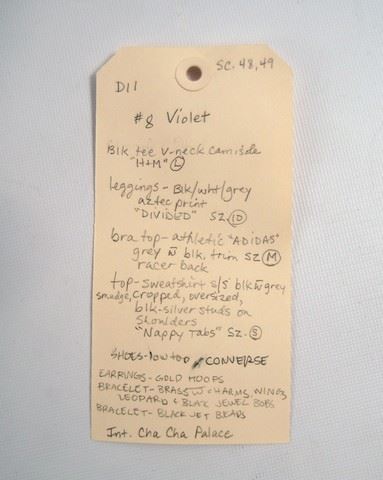 SC. 48,49
D11
#8 Violet
Blk tee V-neck camisole
"H+M" L
leggings - Blk/wht/grey
aztec print
"DIVIDED" SZ. 10
bra top - athletic "ADIDAS"
grey w̄ blk. trim SZ M
racer back
top - sweatshirt s/s blk w̄ grey
smudge, cropped, oversized,
blk-silver studs on
shoulders
"Nappy Tabs" SZ. S
SHOES - low top CONVERSE
EARRINGS - GOLD HOOPS
BRACELET - BRASS W CHARMS, WINGS
LEOPARD & BLACK JEWEL BOBS
BRACELET - BLACK JET BEADS
Int. Cha Cha Palace